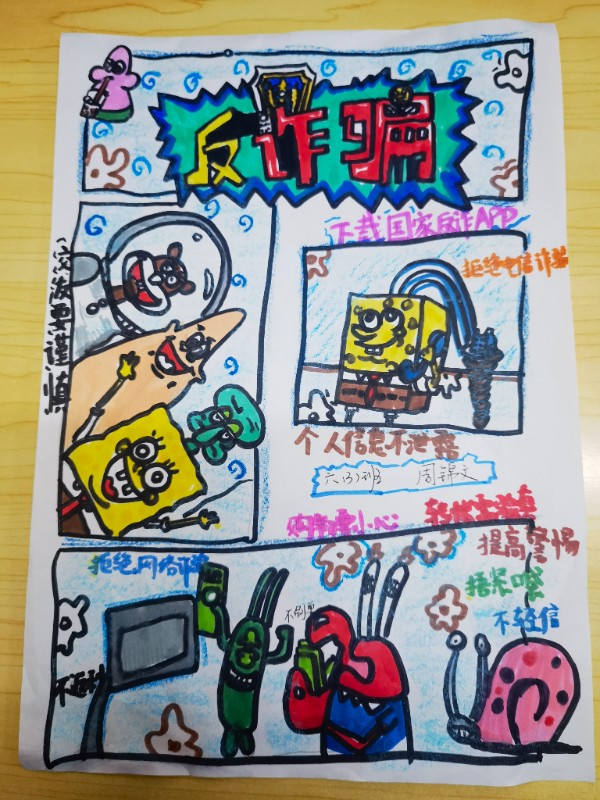 反诈骗
下载国家反诈APP
拒绝电信诈骗
交友要谨慎
个人信息不泄露
六(3)班 周锦文
小心
提高警惕
捂紧
不轻信
拒绝网络诈骗
不刷单